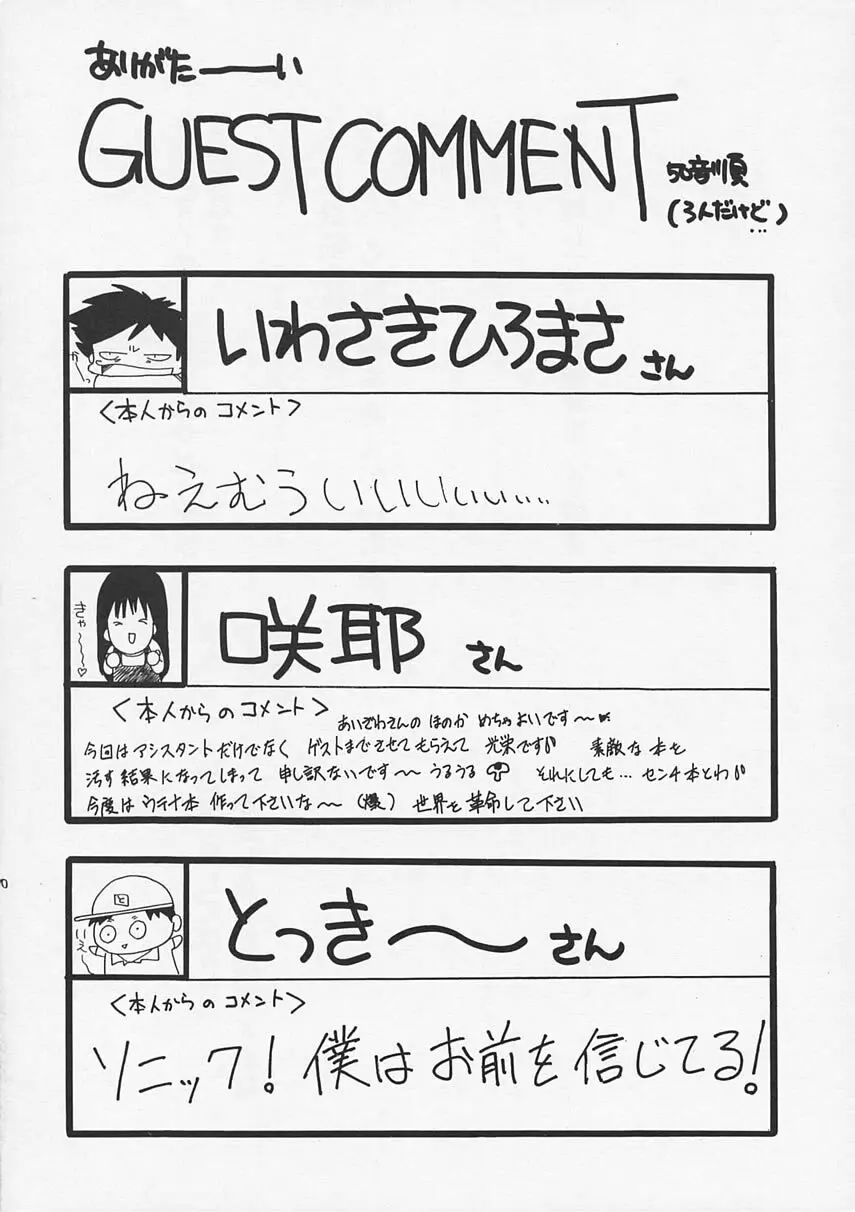 ありがたーーい
GUEST COMMENT
50音順
(ろんだけど…)
いわさきひろまさ さん
かーっ
<本人からの コメント>
ねえむういいいいぃぃ…
咲耶 さん
きゃ〜〜〜♡
<本人からの コメント>
あいざわさんの ほのか めちゃよいです〜♥
今回はアシスタントだけでなく ゲストまでさせてもらえて 光栄です♪ 素敵な本を
汚す結果になってしまって 申し訳ないです〜 うるうる それにしても… センチ本とわ♪
今度は ウテナ本 作って下さいな〜 (爆) 世界を革命して下さい
とっき〜 さん
と
いえ
<本人からの コメント>
ソニック! 僕はお前を信じてる!